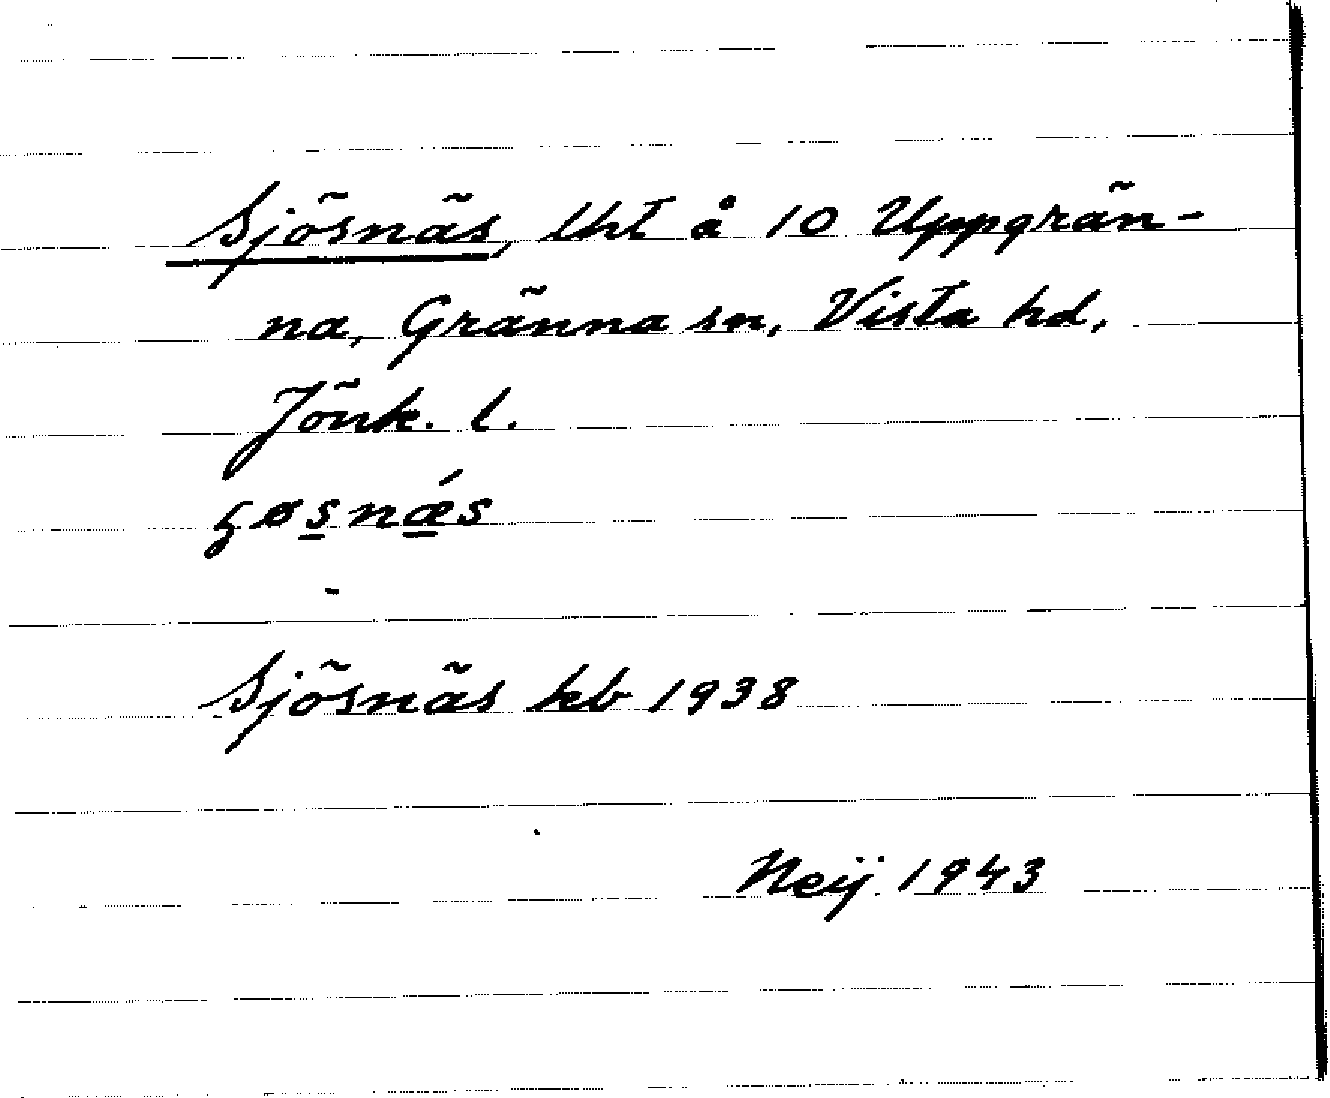 Sjösnäs, lht å 10 Uppgrän-
na, Gränna sn, Vista hd,
Jönk. l.
ɟøsnǽs
Sjösnäs kb 1938
Neij 1943